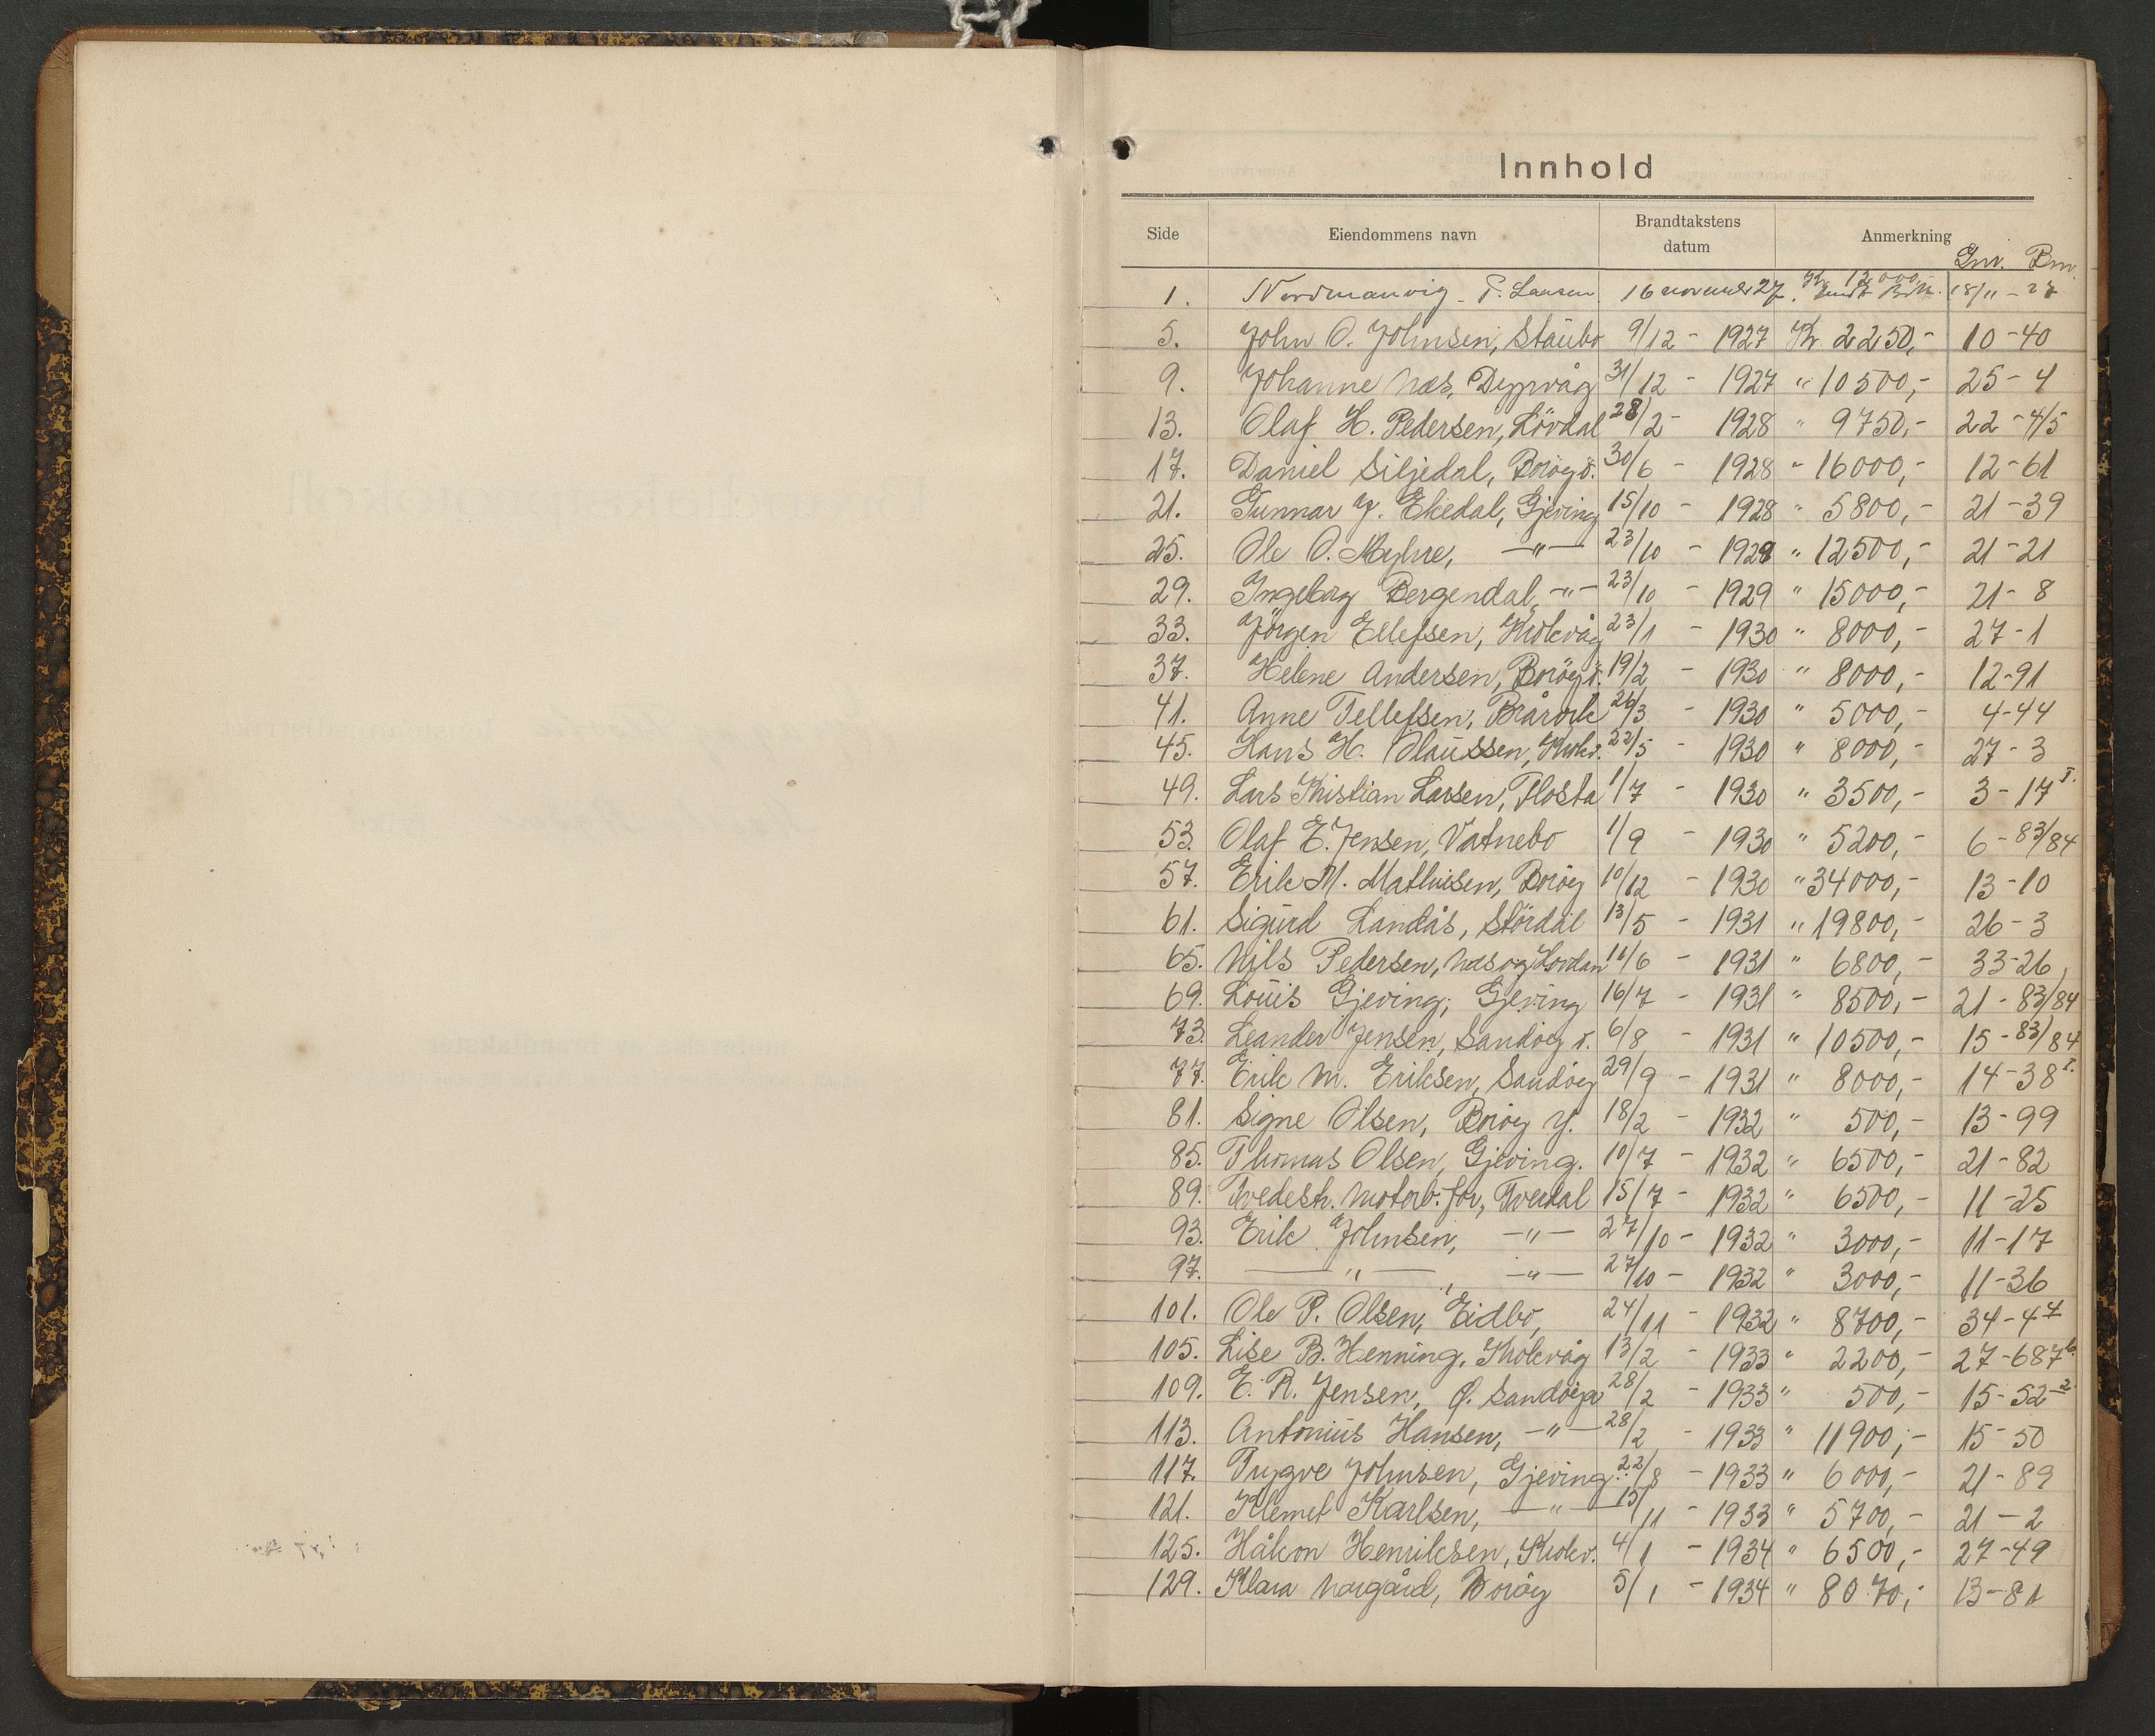 Innhold
Side Eiendommens navn Brandtakstens datum Anmerkning Gnr. Bnr.
1. Nordmanvig - P. Larsen 16 november 27. Kr 12000,- 18/11 - 27
5. John O. Johnsen, Staubo 9/12 - 1927 Kr. 2250,- 10-40
9. Johanne Næs, Dypvåg 31/12 - 1927 " 10500,- 25-4
13. Olaf H. Pedersen, Lövdal 28/2 - 1928 " 9750,- 22-4/5
17. Daniel Siljedal, Boröy ö. 30/6 - 1928 " 16000,- 12-61
21. Gunnar J. Ekedal, Gjeving 15/10 - 1928 " 5800,- 21-39
25. Ole O. Myhre, -"- 23/10 - 1929 " 12500,- 21-21
29. Ingeborg Bergendal, -"- 23/10 - 1929 " 15000,- 21-8
33. Jörgen Ellefsen, Krokvåg 23/1 - 1930 " 8000,- 27-1
37. Helene Andersen, Boröy ö. 19/2 - 1930 " 8000,- 12-91
41. Anne Tellefsen, Bråröik 26/3 - 1930 " 5000,- 4-44
45. Hans H. Olaussen, Krokv. 22/5 - 1930 " 8000,- 27-3
49. Lars Kristian Larsen, Flosta 1/7 - 1930 " 3500,- 3-17 I.
53. Olaf E. Jensen, Vatnebo 1/9 - 1930 " 5200,- 6-83/84
57. Erik M. Mathisen, Boröy 10/12 - 1930 " 34000,- 13-10
61. Sigurd Landås, Stördal 13/5 - 1931 " 19800,- 26-3
65. Nils Pedersen, Næs og Hovdan 11/6 - 1931 " 6800,- 33-26
69. Louis Gjeving, Gjeving 16/7 - 1931 " 8500,- 21-83/84
73. Leander Jensen, Sandöy ö. 6/8 - 1931 " 10500,- 15-83/84
77. Erik M. Eriksen, Sandöy 29/9 - 1931 " 8000,- 14-38 I.
81. Signe Olsen, Boröy y. 18/2 - 1932 " 500,- 13-99
85. Thomas Olsen, Gjeving. 10/7 - 1932 " 6500,- 21-82
89. Tvedestr. Motorb. for, Tverdal 15/7 - 1932 " 6500,- 11-25
93. Erik Johnsen, -"- 27/10 - 1932 " 3000,- 11-17
97. -"-, -"- 27/10 - 1932 " 3000,- 11-36
101. Ole P. Olsen, Eidbo, 24/11 - 1932 " 8700,- 34-47
105. Lise B. Henning, Krokvåg 13/2 - 1933 " 2200,- 27-687 b.
109. E. R. Jensen, Ø. Sandöya 28/2 - 1933 " 500,- 15-52 2
113. Antonius Hansen, -"- 28/2 - 1933 " 11900,- 15-50
117. Trygve Johnsen, Gjeving 22/8 - 1933 " 6000,- 21-89
121. Klemet Karlsen, -"- 15/11 - 1933 " 5700,- 21-2
125. Håkon Henriksen, Krokv. 4/1 - 1934 " 6500,- 27-49
129. Klara Norgård, Boröy 5/1 - 1934 " 8070,- 13-81